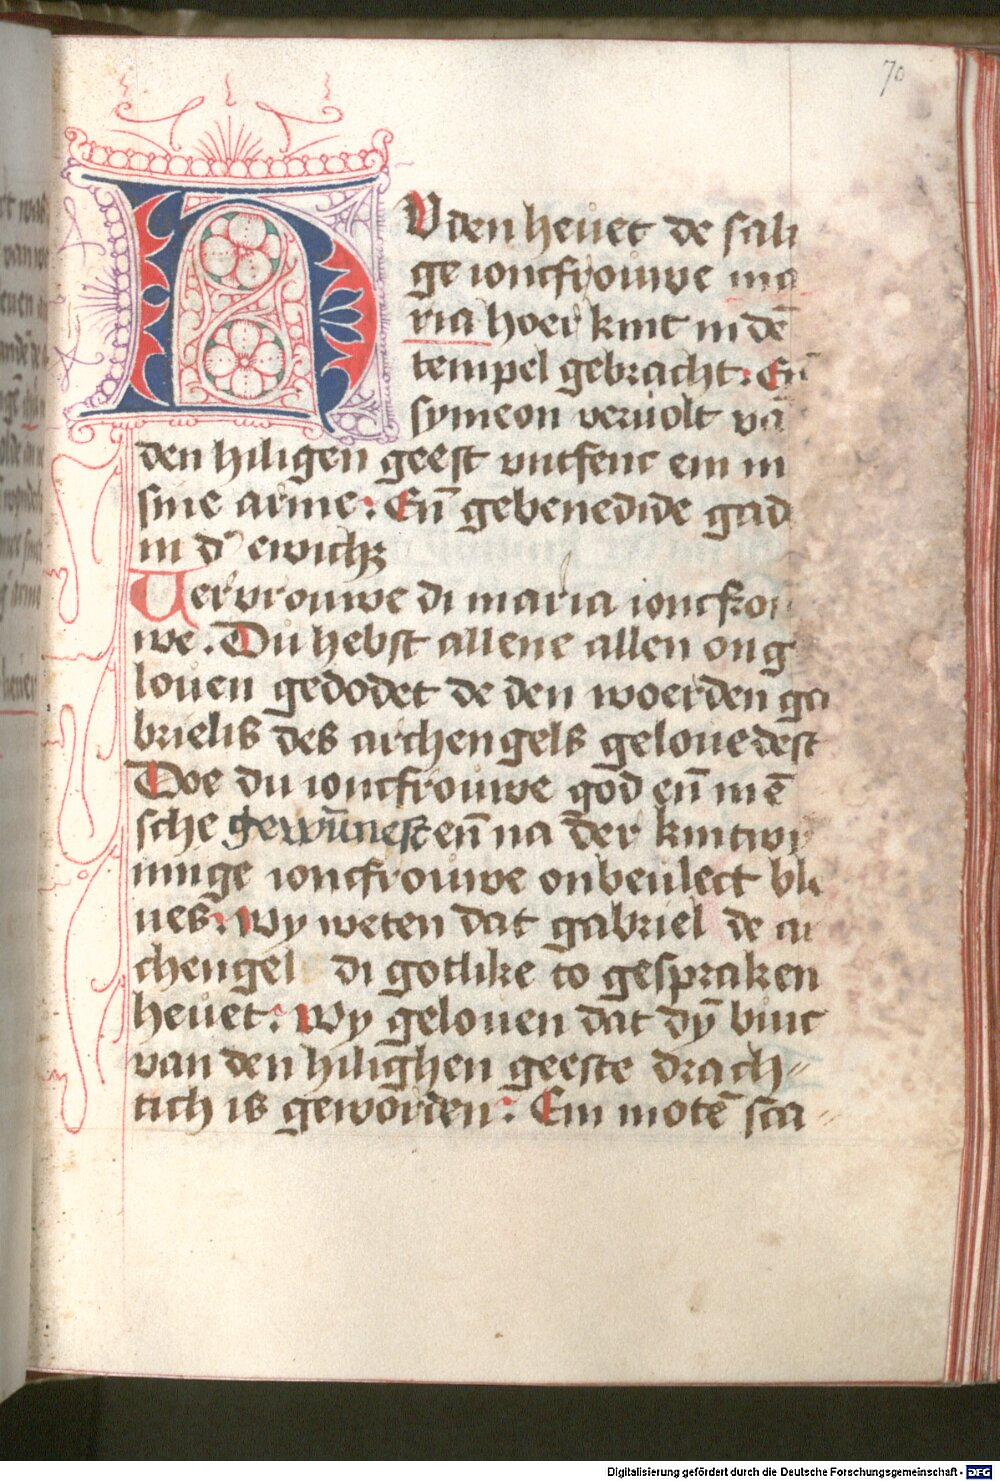 70
NVden heuet de sali
ge ioncfrouwe ma
ria hoer kint in dē
tempel gebracht: Eñ
symeon veruolt vā
den hiligen geest vntfenc em in
sine arme: Eñ gebenedide gad
in d' ewich
Vervrouwe di maria ioncfrou
we. Du hebst allene allen ong
louen gedodet de den woerden ga
brielis des archengels gelouedest
Doe du ioncfrouwe god eñ mē
sche gewūnest eñ na der kintwy
ninge ioncfrouwe onbeulect ble
ues: Wy weten dat gabriel de ar
chengel di gotlike to gespraken
heuet: Wy gelouen dat dȳ vruc
van den hilighen geeste drach
tich is geworden: Em motē sca
Digitalisierung gefördert durch die Deutsche Forschungsgemeinschaft - DFG